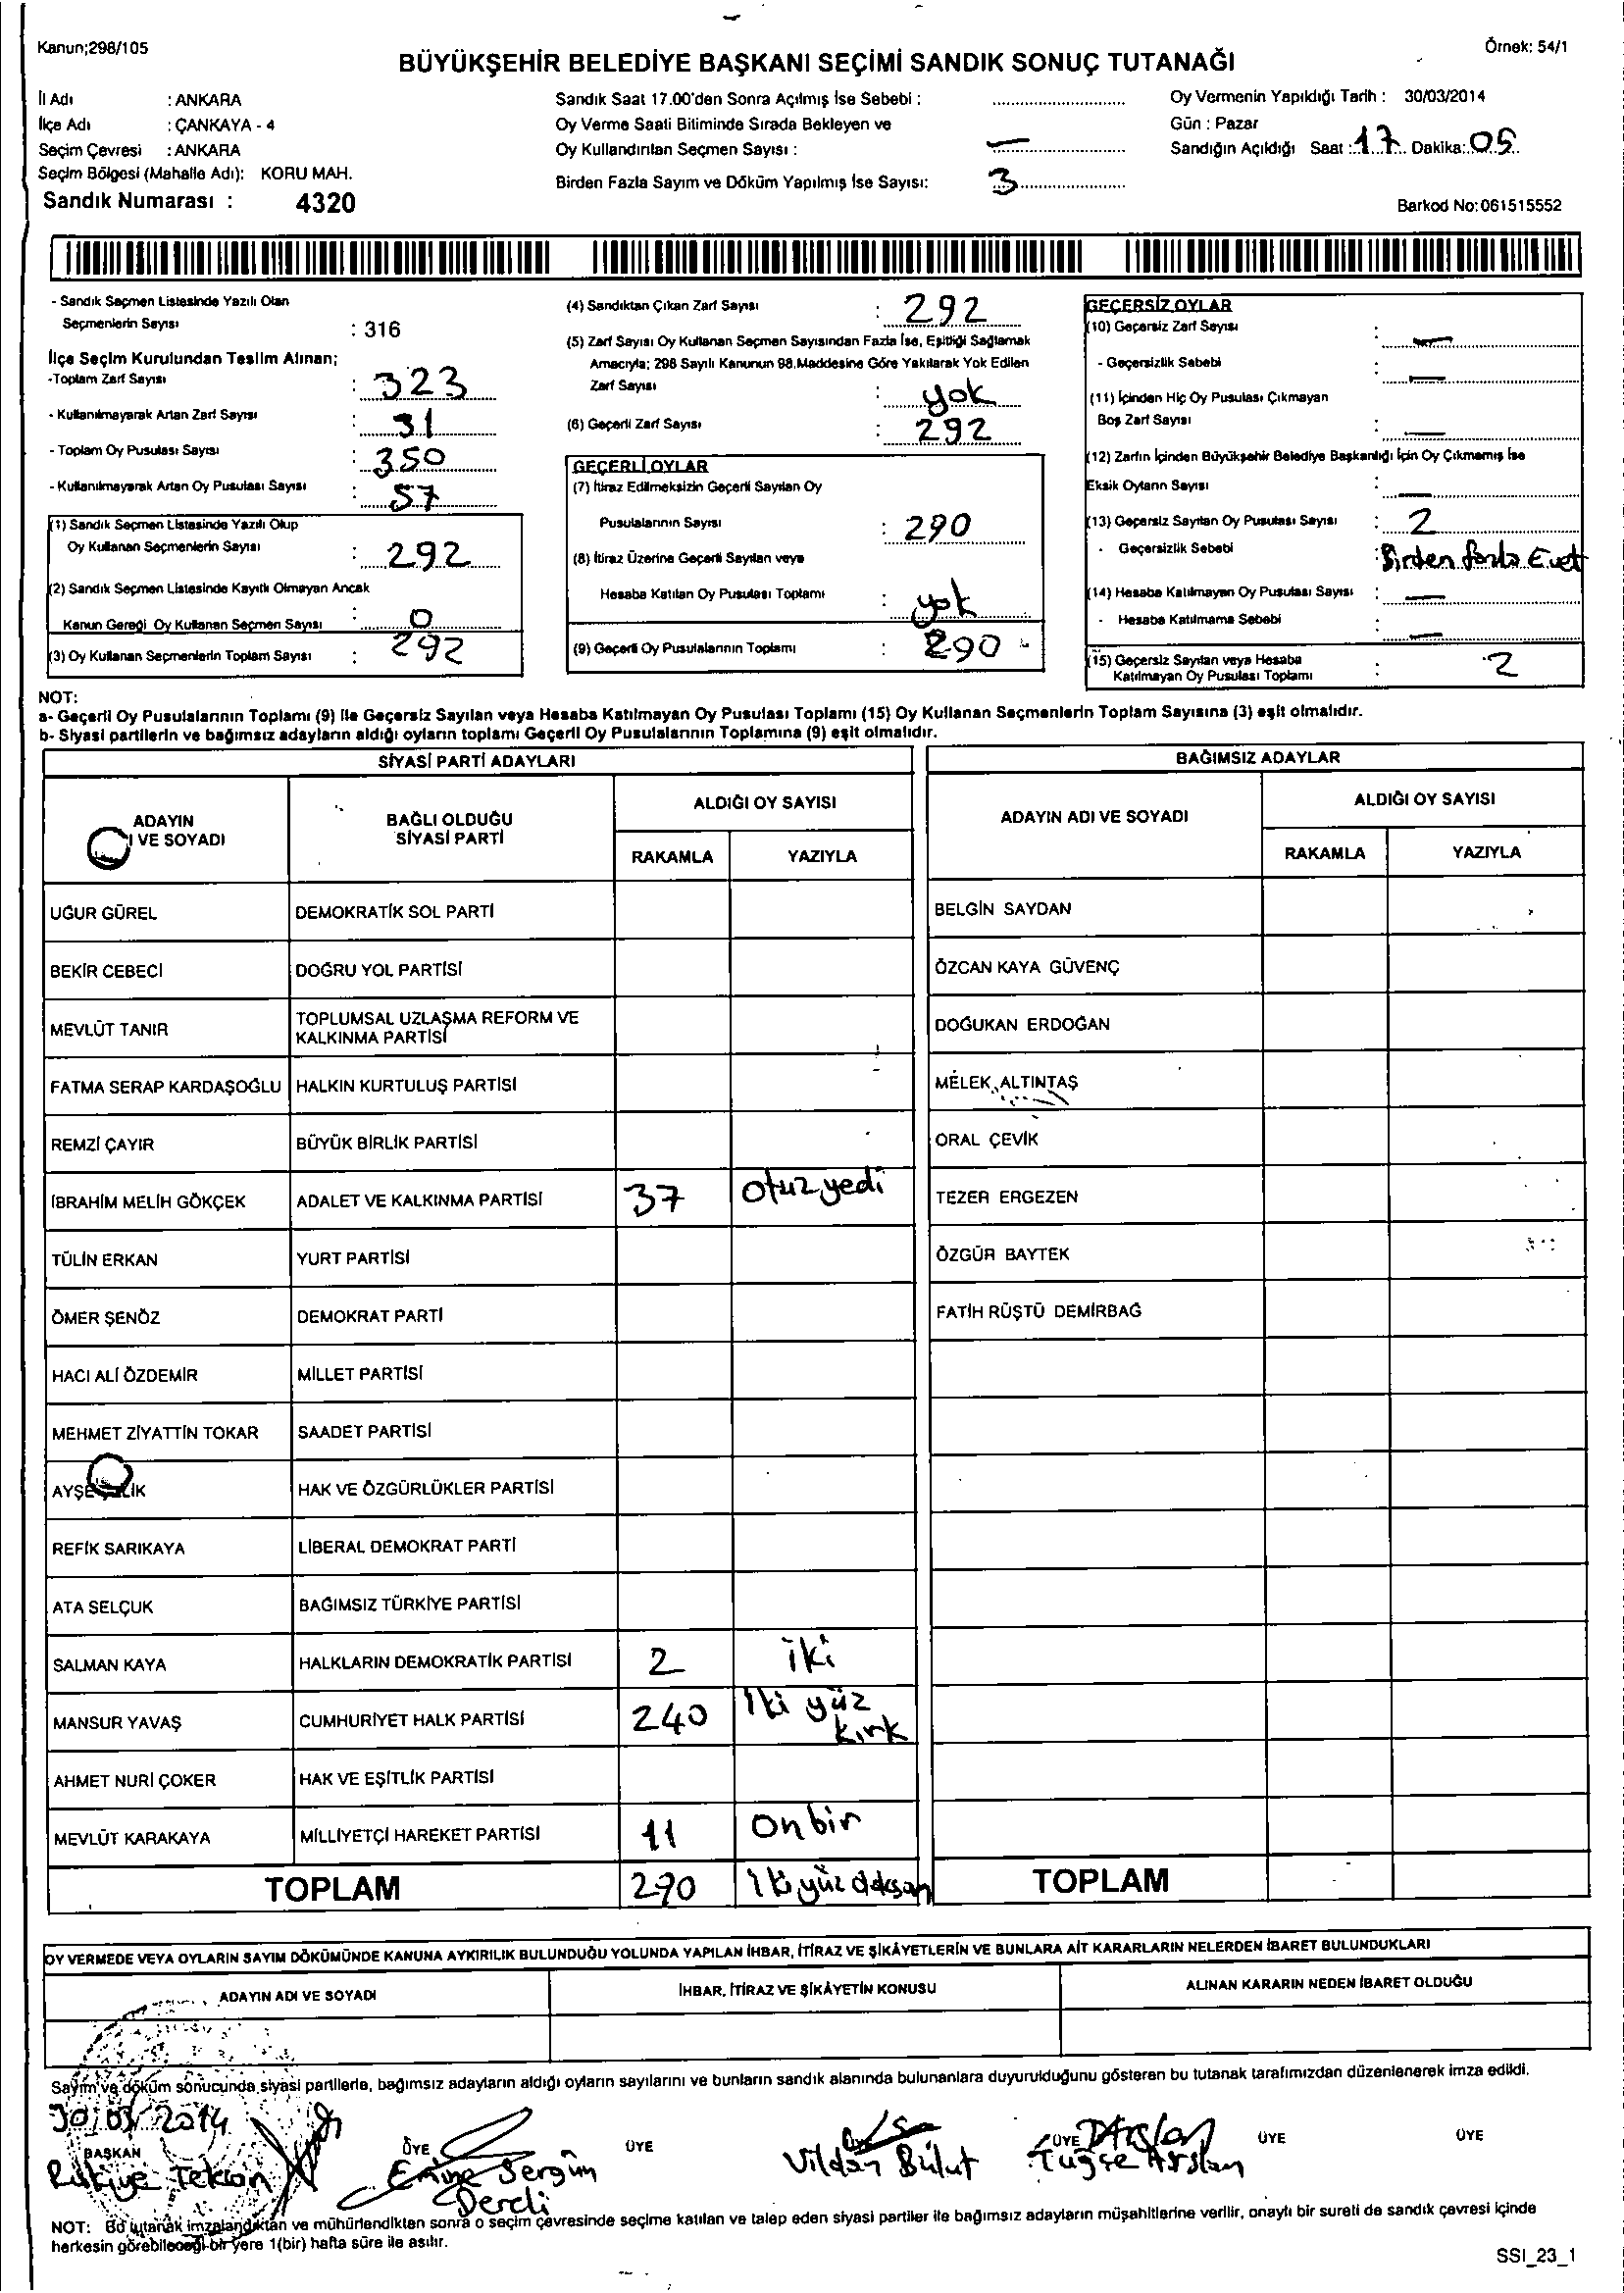 Kanun;298/105
Örnek: 54/1
BÜYÜKŞEHİR BELEDİYE BAŞKANI SEÇİMİ SANDIK SONUÇ TUTANAĞI
İl Adı : ANKARA
İlçe Adı : ÇANKAYA - 4
Seçim Çevresi : ANKARA
Seçim Bölgesi (Mahalle Adı): KORU MAH.
Sandık Numarası : 4320
Sandık Saat 17.00'den Sonra Açılmış İse Sebebi :
Oy Verme Saati Bitiminde Sırada Bekleyen ve
Oy Kullandırılan Seçmen Sayısı : —
Birden Fazla Sayım ve Döküm Yapılmış İse Sayısı: 3
Oy Vermenin Yapıldığı Tarih : 30/03/2014
Gün : Pazar
Sandığın Açıldığı Saat : 17 Dakika: 05
Barkod No:061515552
- Sandık Seçmen Listesinde Yazılı Olan
Seçmenlerin Sayısı : 316
İlçe Seçim Kurulundan Teslim Alınan;
-Toplam Zarf Sayısı : 323
- Kullanılmayarak Artan Zarf Sayısı : 31
- Toplam Oy Pusulası Sayısı : 350
- Kullanılmayarak Artan Oy Pusulası Sayısı : 57
(1) Sandık Seçmen Listesinde Yazılı Olup
Oy Kullanan Seçmenlerin Sayısı : 292
(2) Sandık Seçmen Listesinde Kayıtlı Olmayan Ancak
Kanun Gereği Oy Kullanan Seçmen Sayısı : 0
(3) Oy Kullanan Seçmenlerin Toplam Sayısı : 292
(4) Sandıktan Çıkan Zarf Sayısı : 292
(5) Zarf Sayısı Oy Kullanan Seçmen Sayısından Fazla İse, Eşitliği Sağlamak
Amacıyla; 298 Sayılı Kanunun 98.Maddesine Göre Yakılarak Yok Edilen
Zarf Sayısı : yok
(6) Geçerli Zarf Sayısı : 292
GEÇERLİ OYLAR
(7) İtiraz Edilmeksizin Geçerli Sayılan Oy
Pusulalarının Sayısı : 290
(8) İtiraz Üzerine Geçerli Sayılan veya
Hesaba Katılan Oy Pusulası Toplamı : yok
(9) Geçerli Oy Pusulalarının Toplamı : 290
GEÇERSİZ OYLAR
(10) Geçersiz Zarf Sayısı : —
- Geçersizlik Sebebi : —
(11) İçinden Hiç Oy Pusulası Çıkmayan
Boş Zarf Sayısı : —
(12) Zarfın İçinden Büyükşehir Belediye Başkanlığı İçin Oy Çıkmamış İse
Eksik Oyların Sayısı : —
(13) Geçersiz Sayılan Oy Pusulası Sayısı : 2
- Geçersizlik Sebebi : Birden fazla Evet
(14) Hesaba Katılmayan Oy Pusulası Sayısı : —
- Hesaba Katılmama Sebebi : —
(15) Geçersiz Sayılan veya Hesaba
Katılmayan Oy Pusulası Toplamı : 2
NOT:
a- Geçerli Oy Pusulalarının Toplamı (9) ile Geçersiz Sayılan veya Hesaba Katılmayan Oy Pusulası Toplamı (15) Oy Kullanan Seçmenlerin Toplam Sayısına (3) eşit olmalıdır.
b- Siyasi partilerin ve bağımsız adayların aldığı oyların toplamı Geçerli Oy Pusulalarının Toplamına (9) eşit olmalıdır.
SİYASİ PARTİ ADAYLARI
ADAYIN
I VE SOYADI
BAĞLI OLDUĞU
SİYASİ PARTİ
ALDIĞI OY SAYISI
RAKAMLA YAZIYLA
UĞUR GÜREL DEMOKRATİK SOL PARTİ
BEKİR CEBECİ DOĞRU YOL PARTİSİ
MEVLÜT TANIR TOPLUMSAL UZLAŞMA REFORM VE
KALKINMA PARTİSİ
FATMA SERAP KARDAŞOĞLU HALKIN KURTULUŞ PARTİSİ
REMZİ ÇAYIR BÜYÜK BİRLİK PARTİSİ
İBRAHİM MELİH GÖKÇEK ADALET VE KALKINMA PARTİSİ 37 otuz yedi
TÜLİN ERKAN YURT PARTİSİ
ÖMER ŞENÖZ DEMOKRAT PARTİ
HACI ALİ ÖZDEMİR MİLLET PARTİSİ
MEHMET ZİYATTİN TOKAR SAADET PARTİSİ
AYŞE ÇELİK HAK VE ÖZGÜRLÜKLER PARTİSİ
REFİK SARIKAYA LİBERAL DEMOKRAT PARTİ
ATA SELÇUK BAĞIMSIZ TÜRKİYE PARTİSİ
SALMAN KAYA HALKLARIN DEMOKRATİK PARTİSİ 2 iki
MANSUR YAVAŞ CUMHURİYET HALK PARTİSİ 240 İki yüz
kırk
AHMET NURİ ÇOKER HAK VE EŞİTLİK PARTİSİ
MEVLÜT KARAKAYA MİLLİYETÇİ HAREKET PARTİSİ 11 Onbir
TOPLAM 290 İkiyüz doksan
BAĞIMSIZ ADAYLAR
ADAYIN ADI VE SOYADI
ALDIĞI OY SAYISI
RAKAMLA YAZIYLA
BELGİN SAYDAN
ÖZCAN KAYA GÜVENÇ
DOĞUKAN ERDOĞAN
MELEK ALTINTAŞ
ORAL ÇEVİK
TEZER ERGEZEN
ÖZGÜR BAYTEK
FATİH RÜŞTÜ DEMİRBAĞ
TOPLAM
OY VERMEDE VEYA OYLARIN SAYIM DÖKÜMÜNDE KANUNA AYKIRILIK BULUNDUĞU YOLUNDA YAPILAN İHBAR, İTİRAZ VE ŞİKÂYETLERİN VE BUNLARA AİT KARARLARIN NELERDEN İBARET BULUNDUKLARI
ADAYIN ADI VE SOYADI İHBAR, İTİRAZ VE ŞİKÂYETİN KONUSU ALINAN KARARIN NEDEN İBARET OLDUĞU
Sayım ve döküm sonucunda siyasi partilerle, bağımsız adayların aldığı oyların sayılarını ve bunların sandık alanında bulunanlara duyurulduğunu gösteren bu tutanak tarafımızdan düzenlenerek imza edildi.
30/03/2014
BAŞKAN ÜYE ÜYE ÜYE ÜYE ÜYE ÜYE
Emine Sergün
Dereli
Vildan Bulut
Tuğçe Arslan
NOT: Bu tutanak imzalandıktan ve mühürlendikten sonra o seçim çevresinde seçime katılan ve talep eden siyasi partiler ile bağımsız adayların müşahitlerine verilir, onaylı bir sureti de sandık çevresi içinde
herkesin görebileceği bir yere 1(bir) hafta süre ile asılır.
SSI_23_1